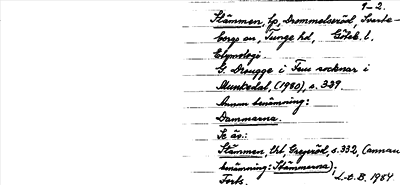 1-2.
Stämmen, lp, Drommelseröd, Svarte-
borgs sn, Tunge hd, Göteb. l.
Etymologi.
G. Drougge i Fem socknar i
Munkedal, (1980), s. 329.
Annan benämning:
Dammarna.
Se äv.:
Stämmen, Urt, Gregeröd, s. 332, (annan
benämning: Stämmerna);
Forts. L.t.B. 1984